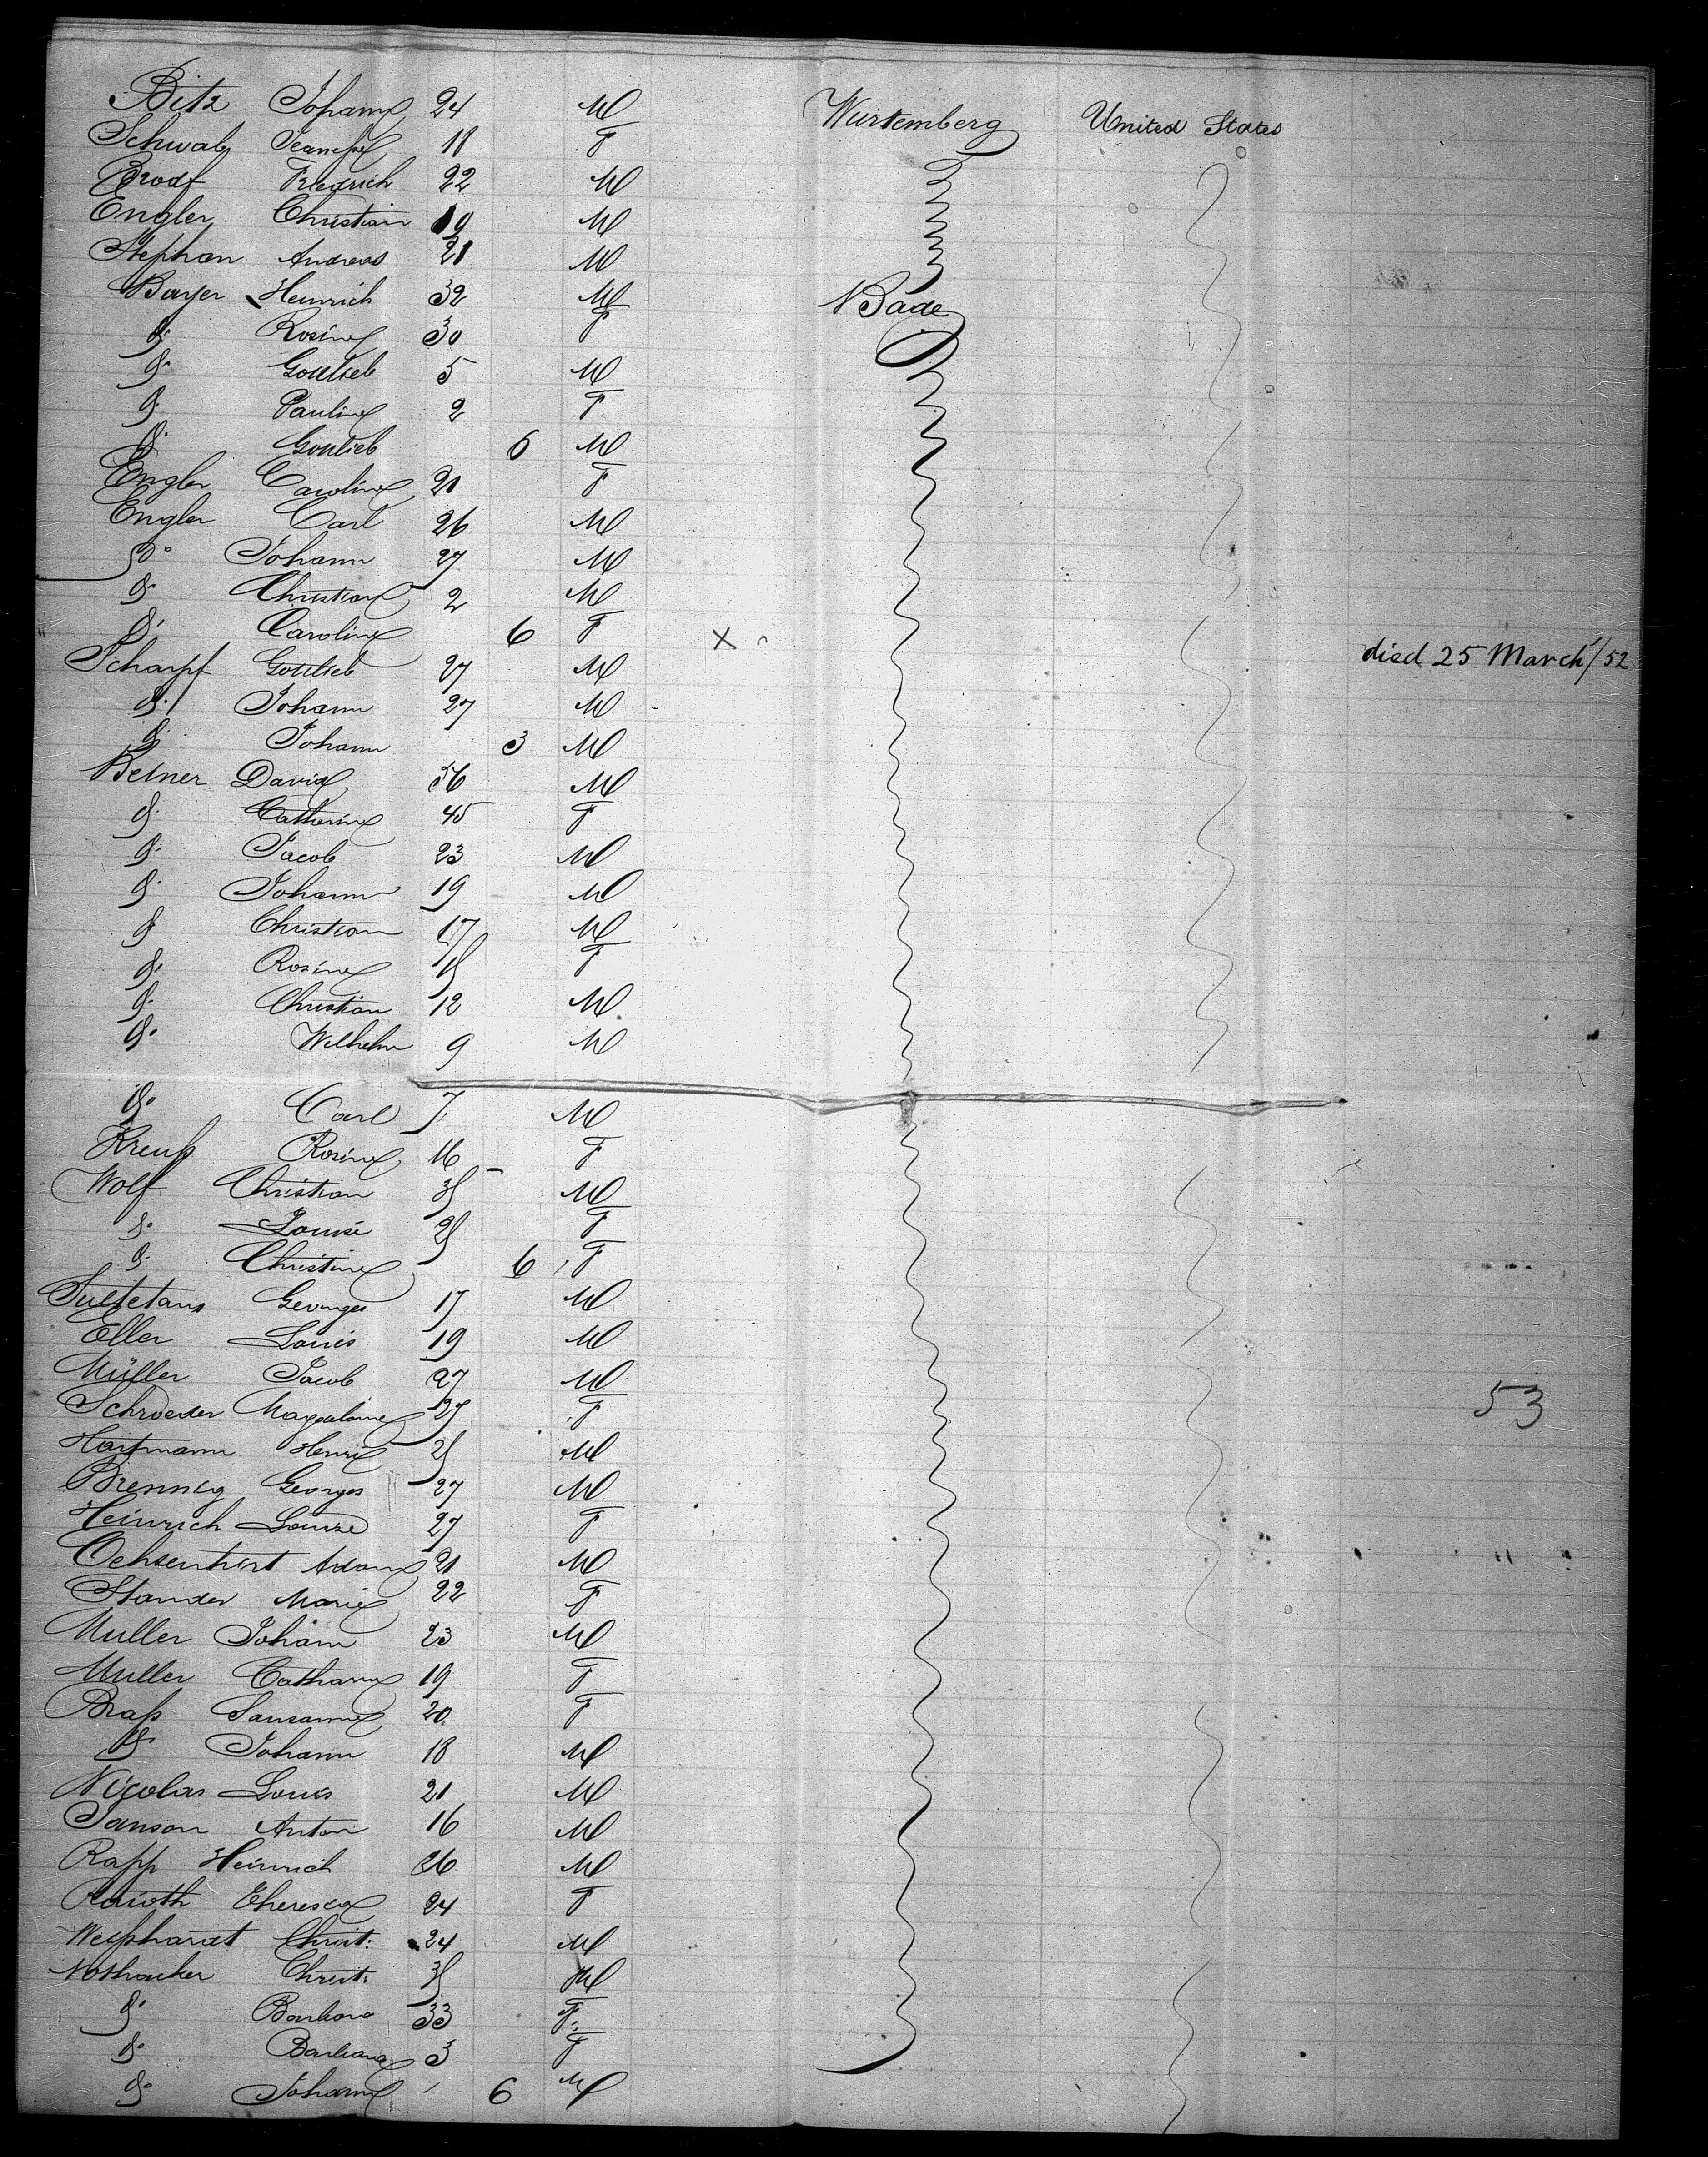 Bitz Johann 24 M Wurtemberg United States
Schwab 18 F
Friedrich 22 M
Engler Christian 19 M
Stephan Andreas 21 M
Bayer Heinrich 32 M Bade
do Rosine 30 F
do Gottlieb 5 M
do Pauline 2 F
do Gottlieb 6 M
Engler Caroline 21 F
Engler Carl 26 M
do Johann 27 M
do Christian 2 M
do Caroline 6 F X died 25 March/52
Scharpf Gottlieb 27 M
do Johann 27 M
do Johann 3 M
Belner David 56 M
do Catherine 45 F
do Jacob 23 M
do Johann 19 M
do Christian 17 M
do Rosine 15 F
do Christian 12 M
do Wilhelm 9 M
do Carl 7 M
Kreuß Rosine 16 F
Wolf Christian 35 M
do Louise 25 F
do Christine 6 F
Georges 17 M
Eller Louis 19 M
Müller Jacob 27 M
Schroeder Magdalaine 25 F 53
Hartmann Henri 25 M
Brennig Georges 27 M
Heinrich Louise 27 F
Ochsenhirt Adam 21 M
Stander Marie 22 F
Muller Johann 23 M
Muller Catharine 19 F
Braß Sausanne 20 F
do Johann 18 M
Nicolas Louis 21 M
Janson Anton 16 M
Rapp Heinrich 26 M
Theresia 24 F
Weißhardt Christ: 24 M
Nothacker Christ: 35 M
do Barbara 33 F
do Barbara 3 F
do Johann 6 M